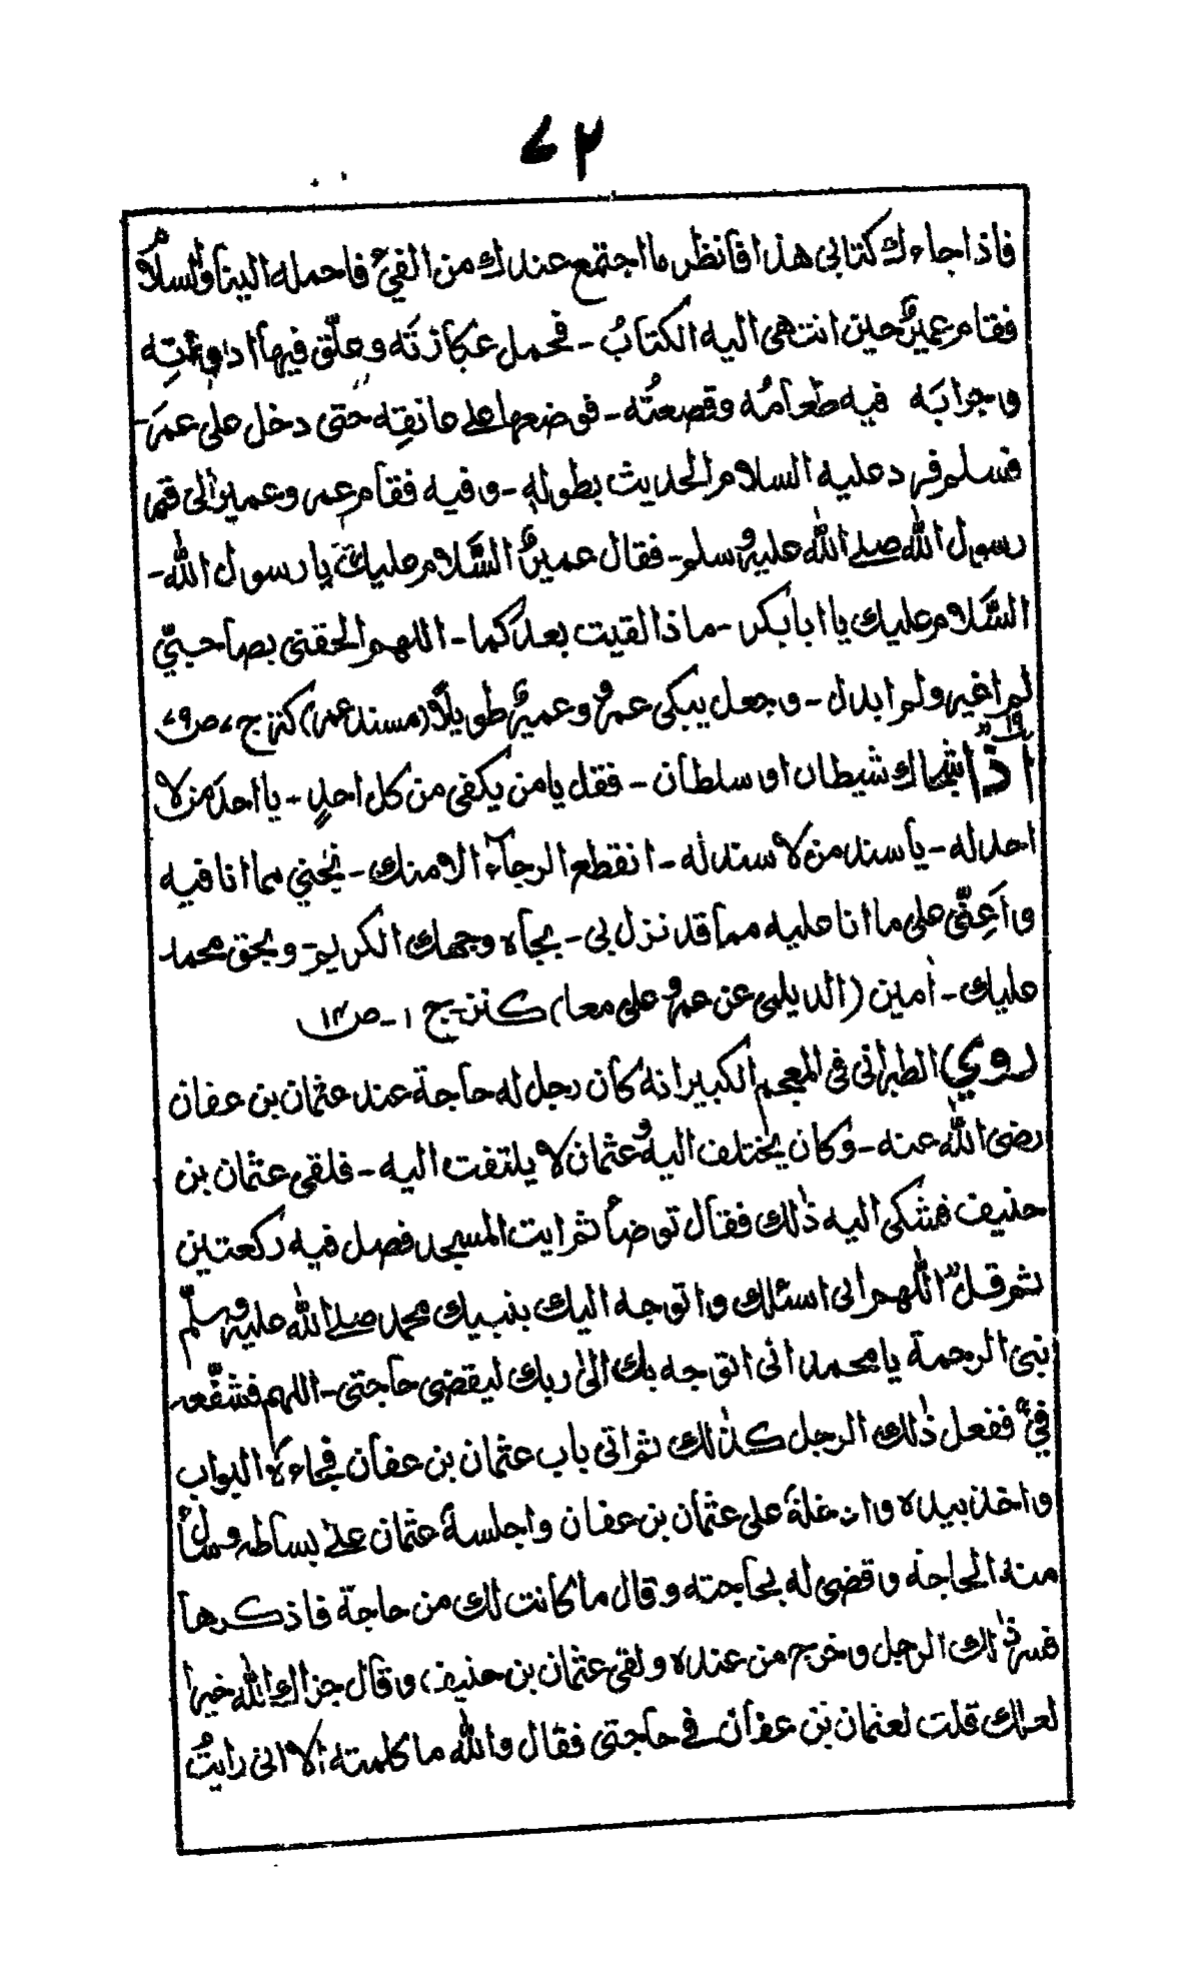 ٧٢
فاذا جاءك كتابى هذا فانظر ما اجتمع عندك من الفيءِ فاحمله الينا والسلامُ
فقام عميرٌ حين انتهى اليه الكتابُ - فحمل عكازتَه وعلّق فيها اداوتِه
وجرابَه فيه طعامُه وقصعتُه - فوضعها على عاتقِه حتى دخل على عمرَ -
فسلم فرد عليه السلام الحديث بطوله - وفيه فقام عمر وعمير الى قبر
رسول الله صلى الله عليه وسلم - فقال عميرٌ السَّلام عليك يا رسول الله -
السَّلام عليك يا ابا بكر - ماذا لقيت بعدكما - اللهم الحقنى بصاحبيّ
لم اغير ولم ابدل - وجعل يبكى عمرُ وعميرٌ طويلًا (مسند عمر) كنز ج ٧ ص ٧٩
١٩ اذا شاك شيطان او سلطان - فقل يا من يكفى من كل احدٍ - يا احدَ من لا
احد له - يا سند من لا سند له - انقطع الرجاء الا منك - نجّني مما انا فيه
واَعِنّى على ما انا عليه مما قد نزل بى - بجاه وجهك الكريم - وبحق محمد
عليك - اٰمين (الديلمى عن عمر وعلى معا) كنز ج ١ - ص ١٢
روي الطبرانى فى المعجم الكبير انه كان رجل له حاجة عند عثمان بن عفان
رضى الله عنه - وكان يختلف اليه وعثمان لا يلتفت اليه - فلقى عثمان بن
حنيف فشكى اليه ذٰلك فقال توضأ ثم ايت المسجد فصل فيه ركعتين
ثم قل اللهم انى اسئلك واتوجه اليك بنبيك محمد صلى الله عليه وسلّم
نبى الرحمة يا محمد انى اتوجه بك الىٰ ربك ليقضى حاجتى - اللهم فشفّعه
فيَّ ففعل ذٰلك الرجل كذٰلك ثم اتى باب عثمان بن عفان فجاءه البواب
واخذ بيده وادخله على عثمان بن عفان واجلسهُ عثمان على بساطه وسأل
منه الحاجة وقضى له بحاجته وقال ما كانت لك من حاجة فاذكرها
فسر ذٰلك الرجل وخرج من عنده ولقى عثمان بن حنيف، وقال جزاك الله خيرا
لعلك قلت لعثمان بن عفان فى حاجتى فقال والله ما كلمته الا انى رايتُ